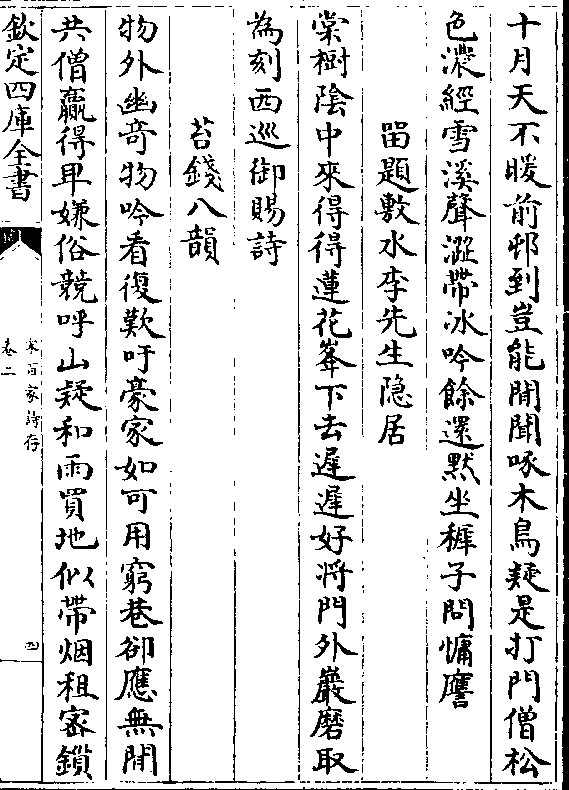 十月天不暖前邨到豈能閒聞啄木鳥疑是打門僧松
色濃經雪溪聲澀帶冰吟餘還默坐穉子問慵譍
畱題敷水李先生隐居
棠樹陰中來得得蓮花峯下去遲遲好將門外巖磨取
為刻西巡御賜詩
苔錢八韻
物外幽奇物吟看復歎吁豪家如可用窮巷卻應無閒
共僧贏得卑嫌俗競呼山疑和雨買地似帶烟租密鎖
欽定四庫全書
宋百家詩存
卷二
四